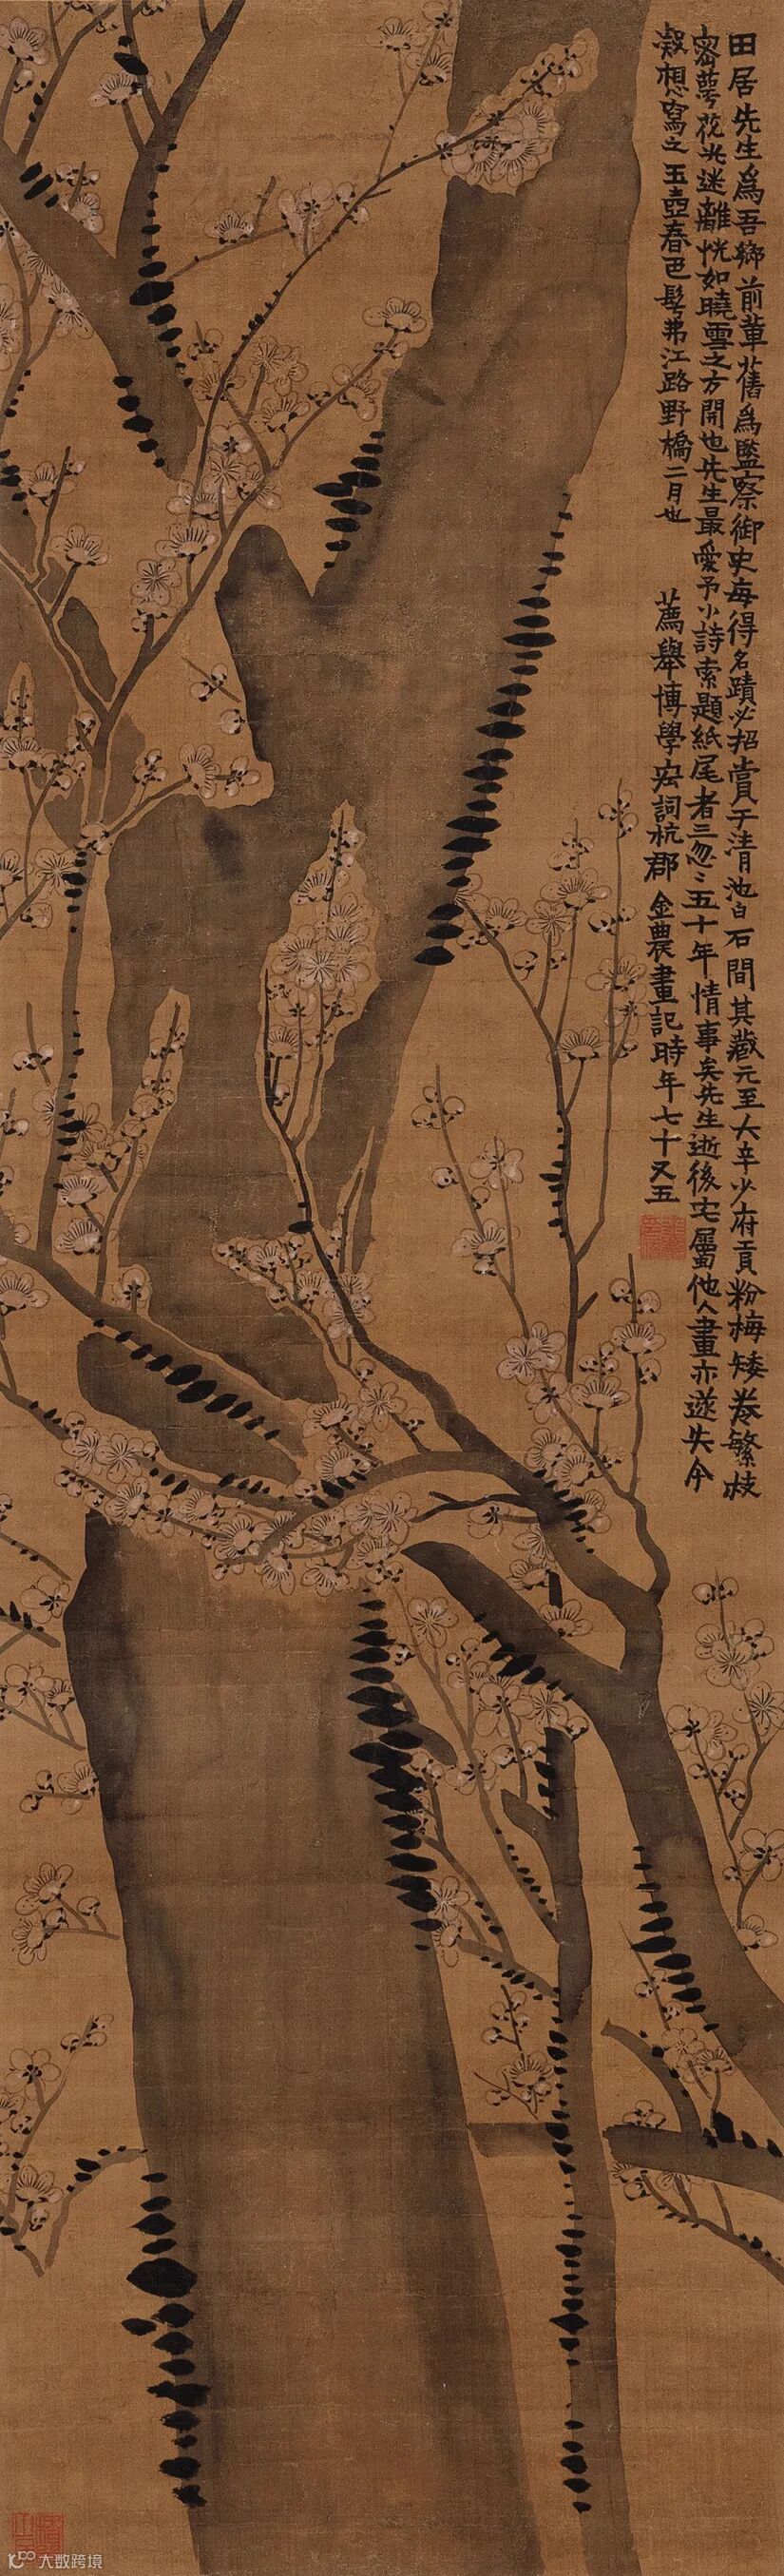 田居先生為吾鄉前輩舊為監察御史每得名蹟必招賞于清池白石間其藏元至大辛少府貢粉梅矮卷繁枝
密萼花光迷離恍如曉雪之方開也先生最愛予小詩索題紙尾者三忽〻五十年情事矣先生逝後宅屬他人畫亦遂失今
想寫之玉壺春色髣弗江路野橋二月也
薦舉博學宏詞杭郡金農畫記時年七十又五
大数跨境